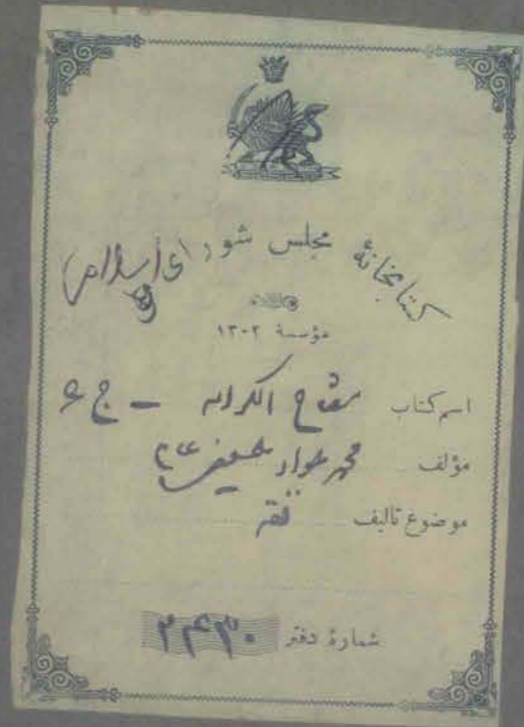 کتابخانهٔ مجلس شورای اسلامی
مؤسسهٔ ۱۳۰۲
اسم کتاب مفتاح الکرامه - ج ۶
مؤلف محمد جواد حسینی
موضوع تالیف فقه
شمارهٔ دفتر ۲۴۳۰